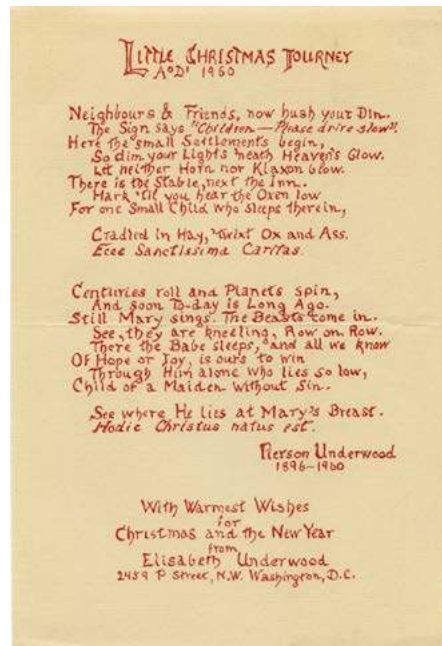 LITTLE CHRISTMAS JOURNEY
A.D. 1960
Neighbours & Friends, now hush your Din.
The Sign says "Children — Please drive slow".
Here the small Settlements begin,
So dim your Lights 'neath Heaven's Glow.
Let neither Horn nor Klaxon blow.
There is the Stable, next the Inn.
Hark 'til you hear the Oxen low
For one Small Child who sleeps therein,
Cradled in Hay, 'twixt Ox and Ass.
Ecce Sanctissima Caritas.
Centuries roll and Planets spin,
And soon To-day is Long Ago.
Still Mary sings. The Beasts come in.
See, they are kneeling, Row on Row.
There the Babe sleeps, and all we know
Of Hope or Joy, is ours to win
Through Him alone who lies so low,
Child of a Maiden without Sin.
See where He lies at Mary's Breast.
Hodie Christus natus est.
Pierson Underwood
1896-1960
With Warmest Wishes
for
Christmas and the New Year
from
Elisabeth Underwood
2459 P Street, N.W. Washington, D.C.